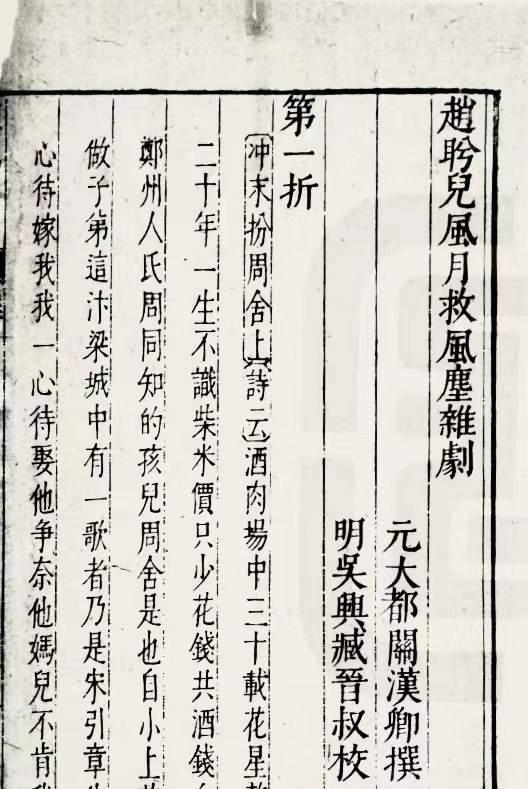 趙盼兒風月救風塵雜劇
元大都關漢卿撰
明吳興臧晉叔校
第一折
冲末扮周舍上詩云酒肉場中三十載花星
二十年一生不識柴米價只少花錢共酒錢
鄭州人氏周同知的孩兒周舍是也自小上
做子弟這汴梁城中有一歌者乃是宋引章
心待嫁我我一心待娶他争奈他媽兒不肯